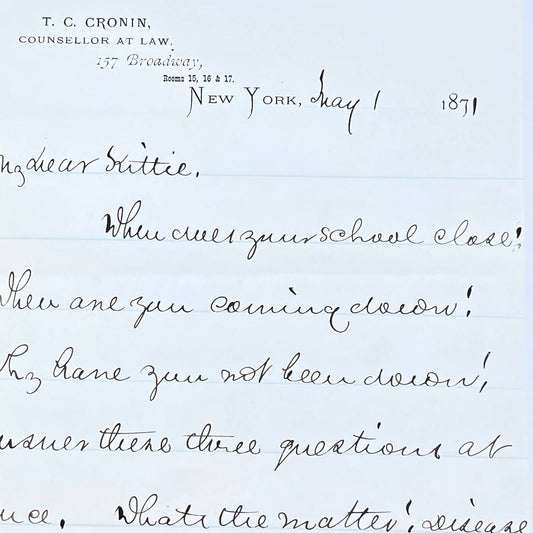 T. C. CRONIN,
COUNSELLOR AT LAW,
157 Broadway,
Rooms 15, 16 & 17.
NEW YORK, May 1 1871
My dear Kittie.
When does your school close?
When are you coming down?
Why have you not been down?
answer these three questions at
once. What's the matter? disease